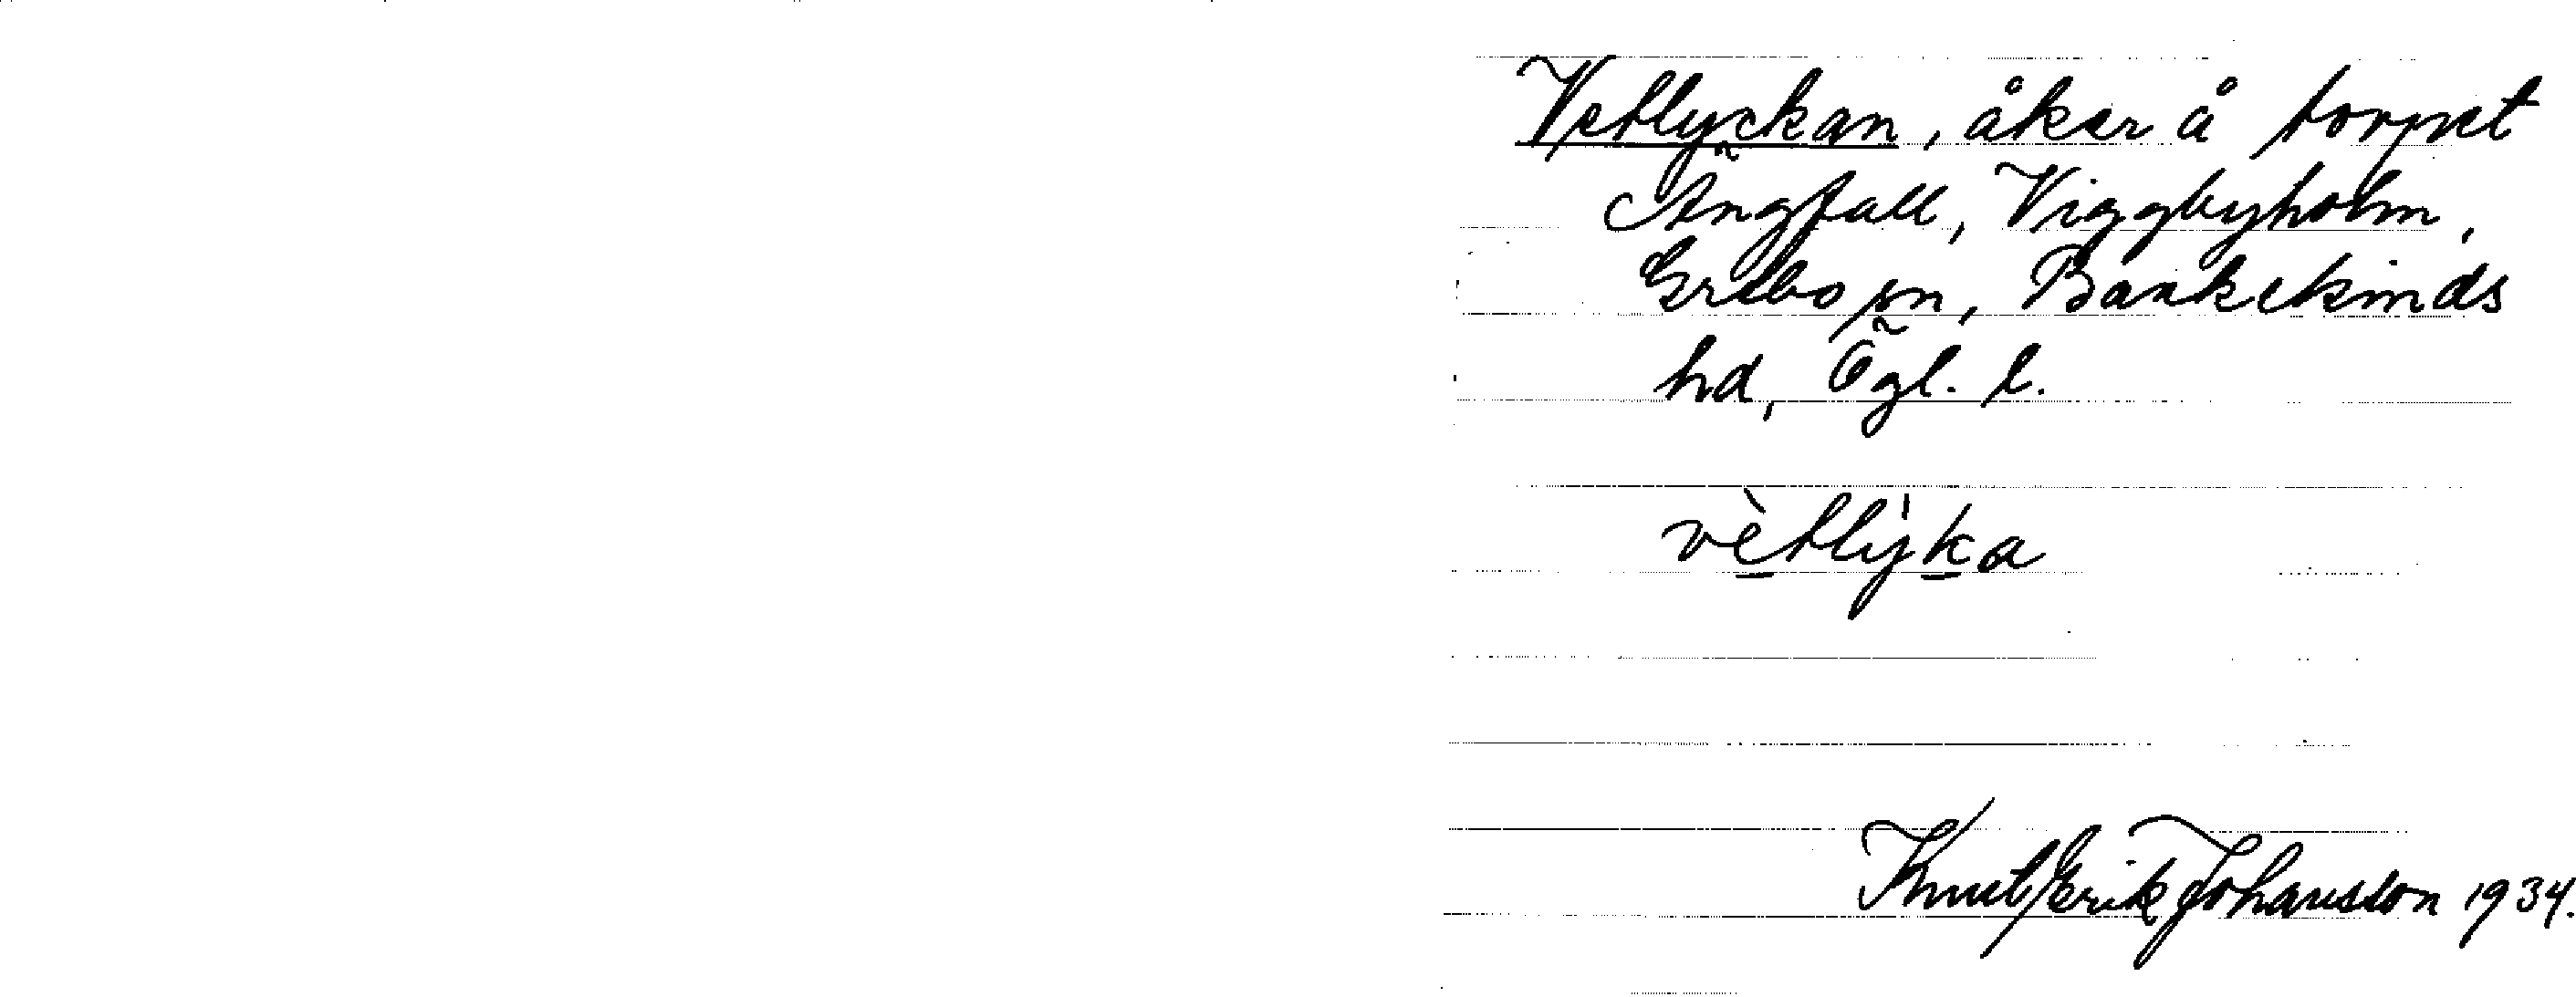 Vetlyckan, åker å torpet
Ängfall, Viggbyholm,
Grebo sn, Bankekinds
hd, Ögl. l.
vètly̍ka
Knut Erik Johansson 1934.